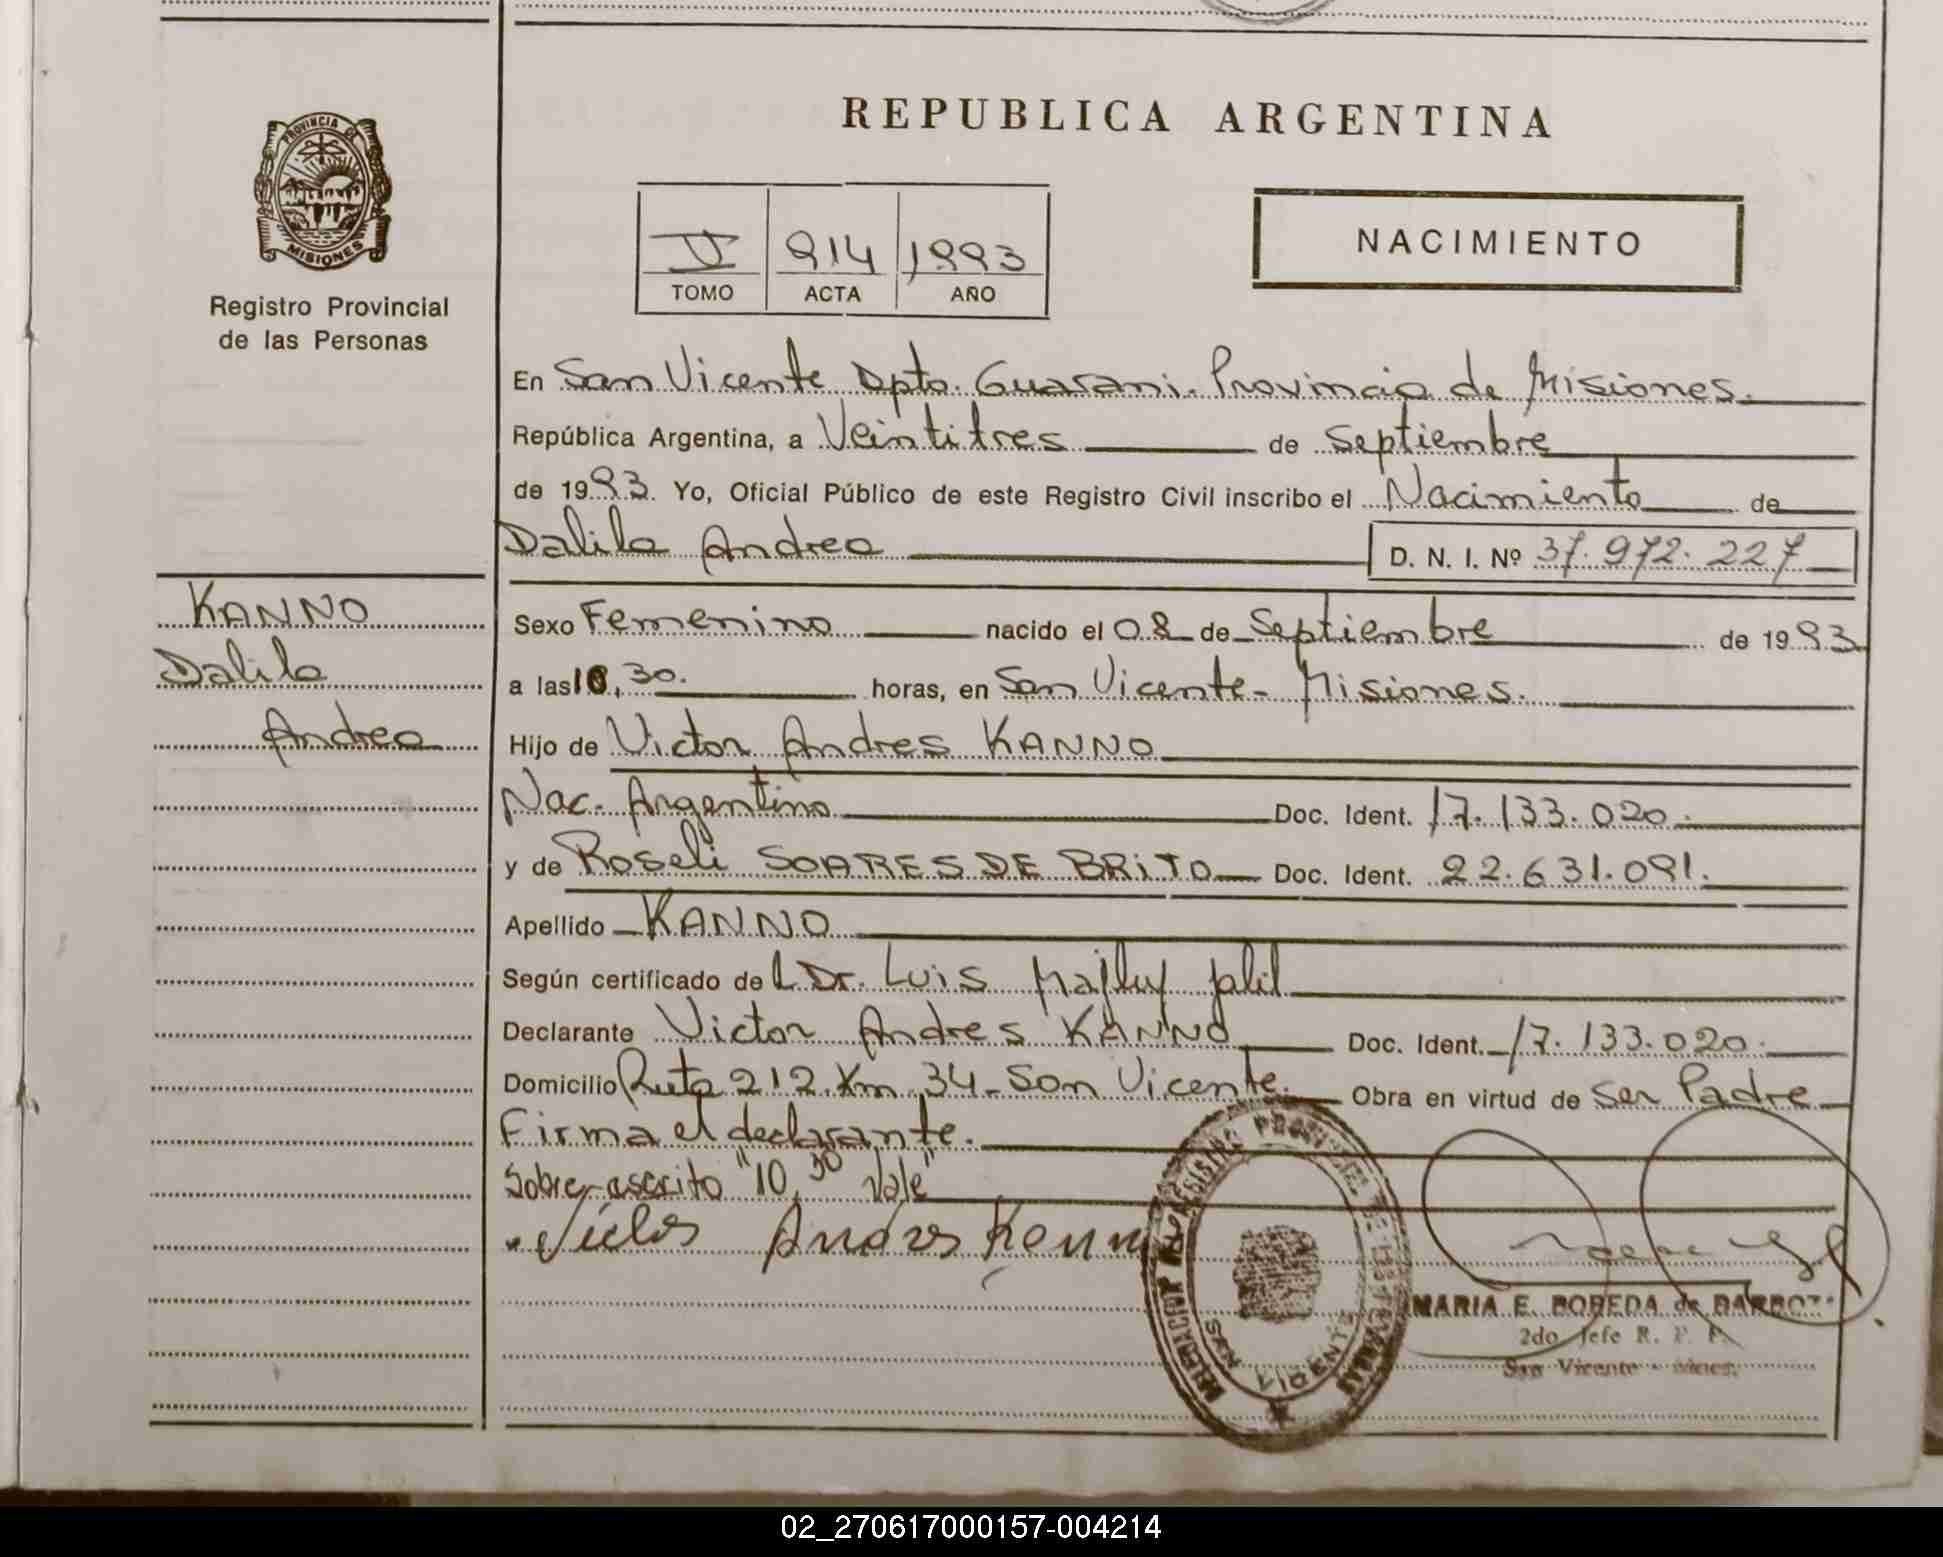 REPUBLICA ARGENTINA
PROVINCIA DE
MISIONES
Registro Provincial
de las Personas
V 914 1993
TOMO ACTA AÑO
NACIMIENTO
En San Vicente Dpto. Guarani. Provincia de Misiones.
República Argentina, a Veintitres de Septiembre
de 1993. Yo, Oficial Público de este Registro Civil inscribo el Nacimiento de
Dalila Andrea D. N. I. Nº 37.972.227
KANNO
Dalila
Andrea
Sexo Femenino nacido el 08 de Septiembre de 1993
a las 10,30. horas, en San Vicente - Misiones.
Hijo de Victor Andres KANNO
Nac. Argentino Doc. Ident. 17.133.020.
y de Roseli SOARES DE BRITO Doc. Ident. 22.631.091.
Apellido KANNO
Según certificado del Dr. Luis
Declarante Victor Andres KANNO Doc. Ident. 17.133.020.
Domicilio Ruta 212 Km 34 - San Vicente. Obra en virtud de Ser Padre
Firma el declarante.
Sobre-ascrito "10,30 Vale"
Andres Kann
DELEGACION REGISTRO PROVINCIAL DE LAS PERSONAS
SAN VICENTE
MARIA E. POREDA de BARBOZA
2do Jefe R. P. P.
San Vicente - Mnes.
02_270617000157-004214